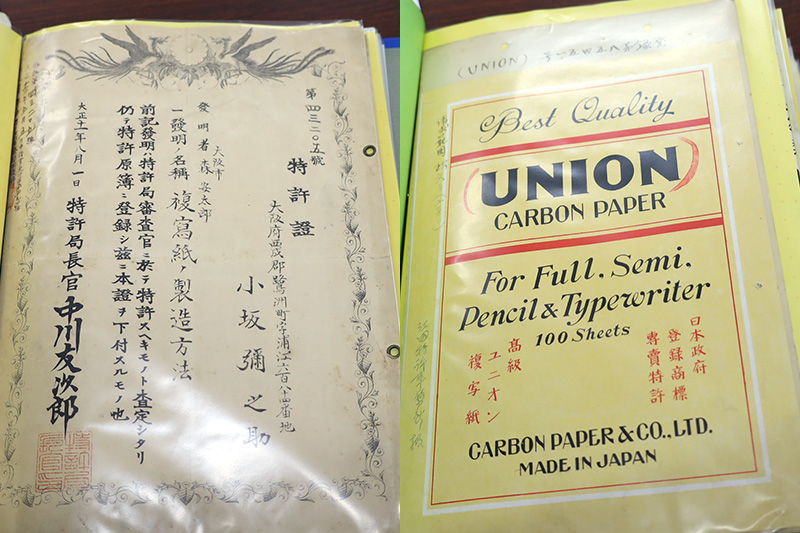 第四三二〇五號
特許證
大阪府西成郡鷺洲町字浦江六百八十四番地
小坂彌之助
大阪市
發明者 森安太郎
一發明ノ名稱 複寫紙ノ製造方法
前記發明ハ特許局審査官ニ於テ特許スヘキモノト査定シタリ
仍テ特許原簿ニ登録シ茲ニ本證ヲ下付スルモノ也
大正十一年八月一日
特許局長官 中川友次郎
(UNION)
Best Quality
(UNION)
CARBON PAPER
For Full. Semi.
Pencil & Typewriter
100 Sheets
日本政府
登録商標
專賣特許
高級
ユニオン
複写紙
CARBON PAPER & CO., LTD.
MADE IN JAPAN